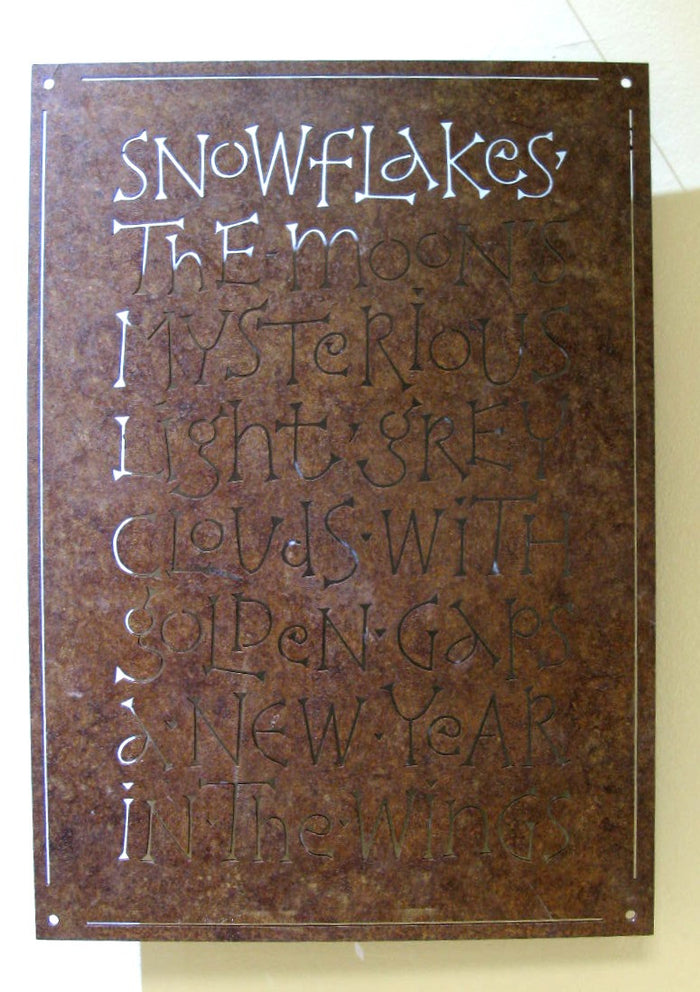 SNOWFLAKES,
ThE·mOON'S
MYSTeRiOUS
Light;gREY
CLOUdS·WiTH
gOLDeN·GAPS
a·NEW·YeAR
iN·The·WinGS